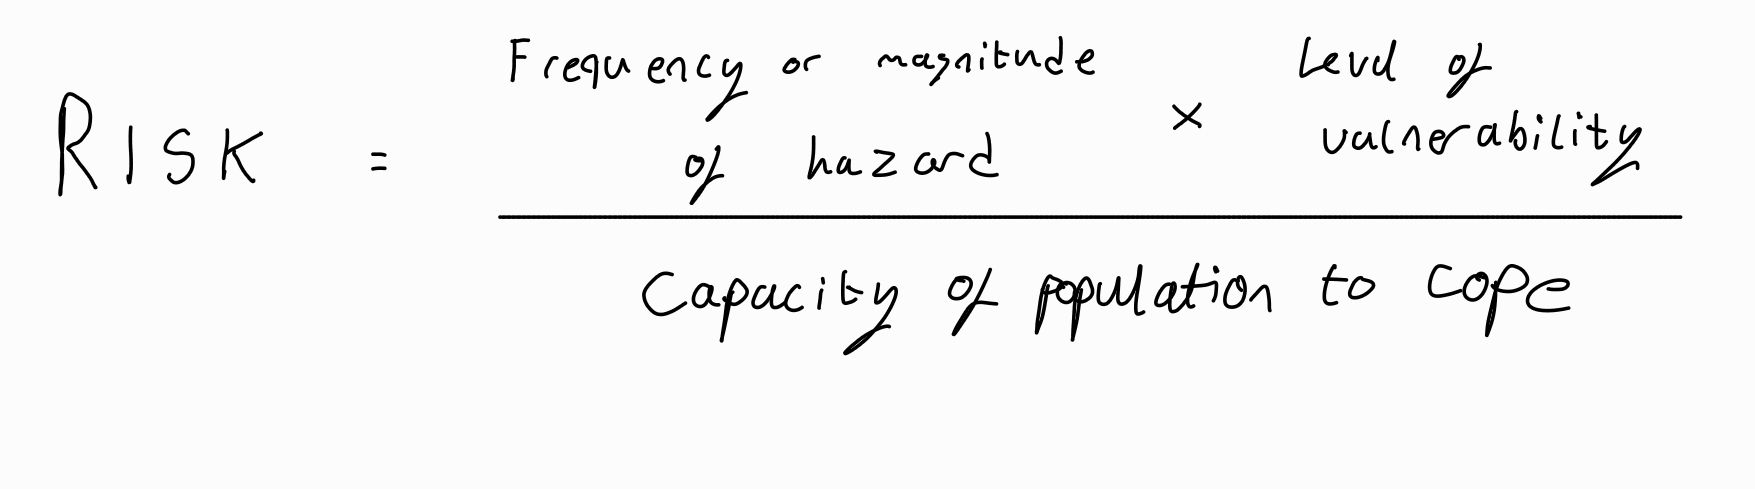 Frequency or magnitude
of hazard
RISK =
× Level of
vulnerability
Capacity of population to cope